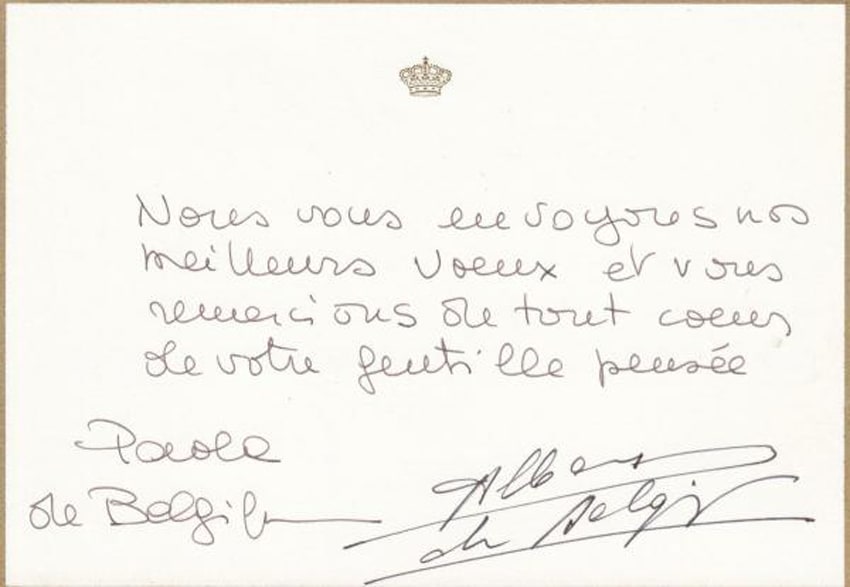 Nous vous envoyons nos
meilleurs voeux et vous
remercions de tout coeur
de votre gentille pensée
Paola
de Belgique
Albert
de Belgique